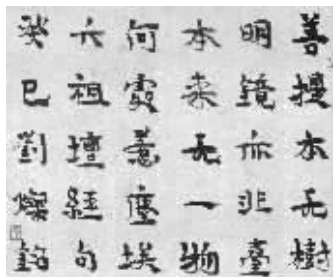 菩提本无樹
明鏡亦非臺
本来无一物
何處惹塵埃
六祖壇經句
癸巳劉燦銘